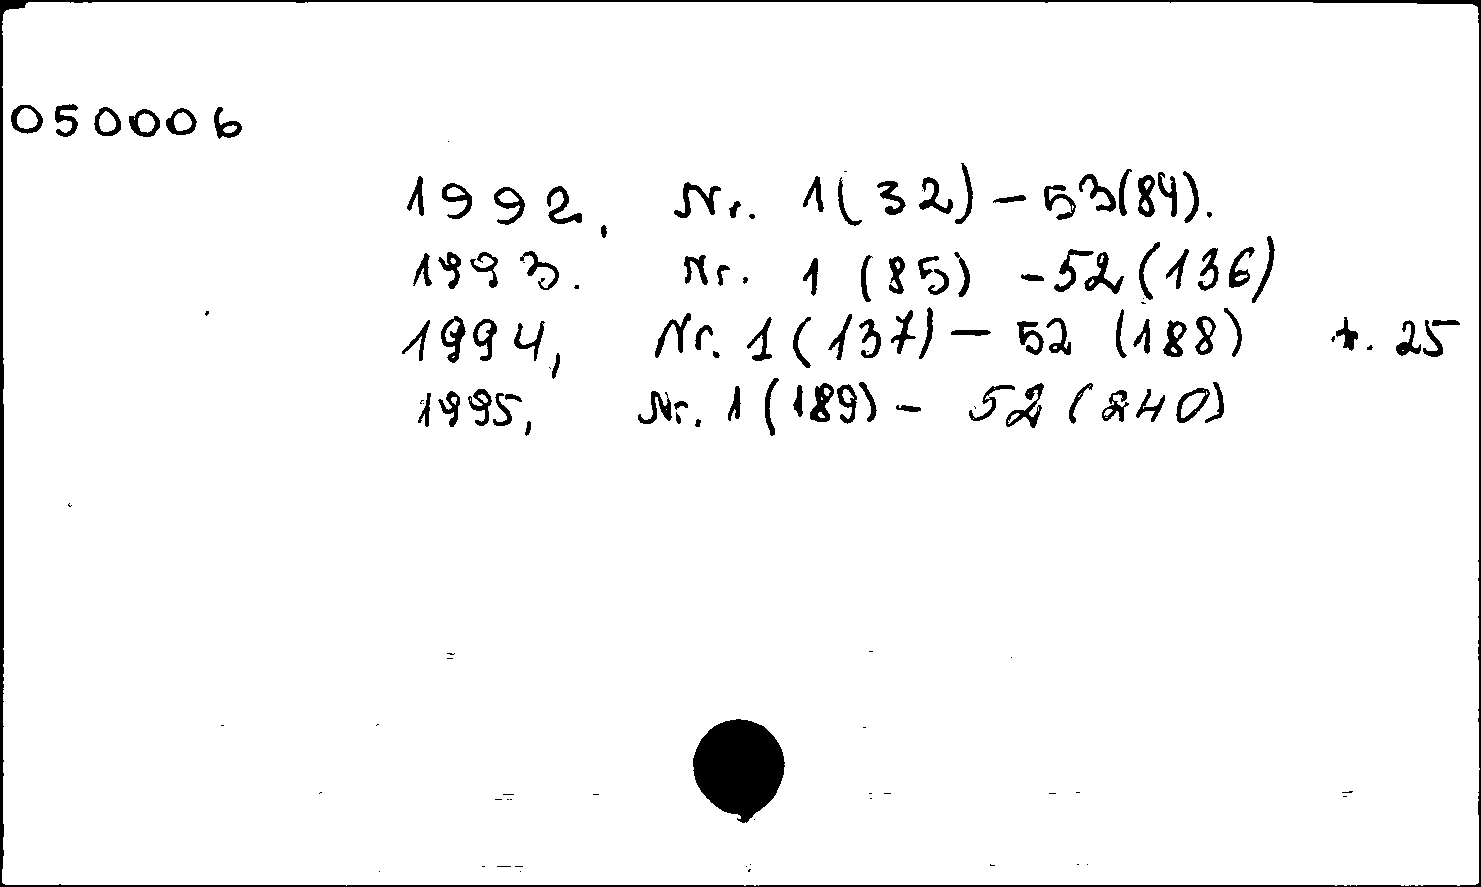 050006
1992, Nr. 1(32) – 53(84).
1993. Nr. 1 (85) – 52(136)
1994, Nr. 1 (137) – 52 (188) *. 25
1995, Nr. 1 (189) – 52 (240)